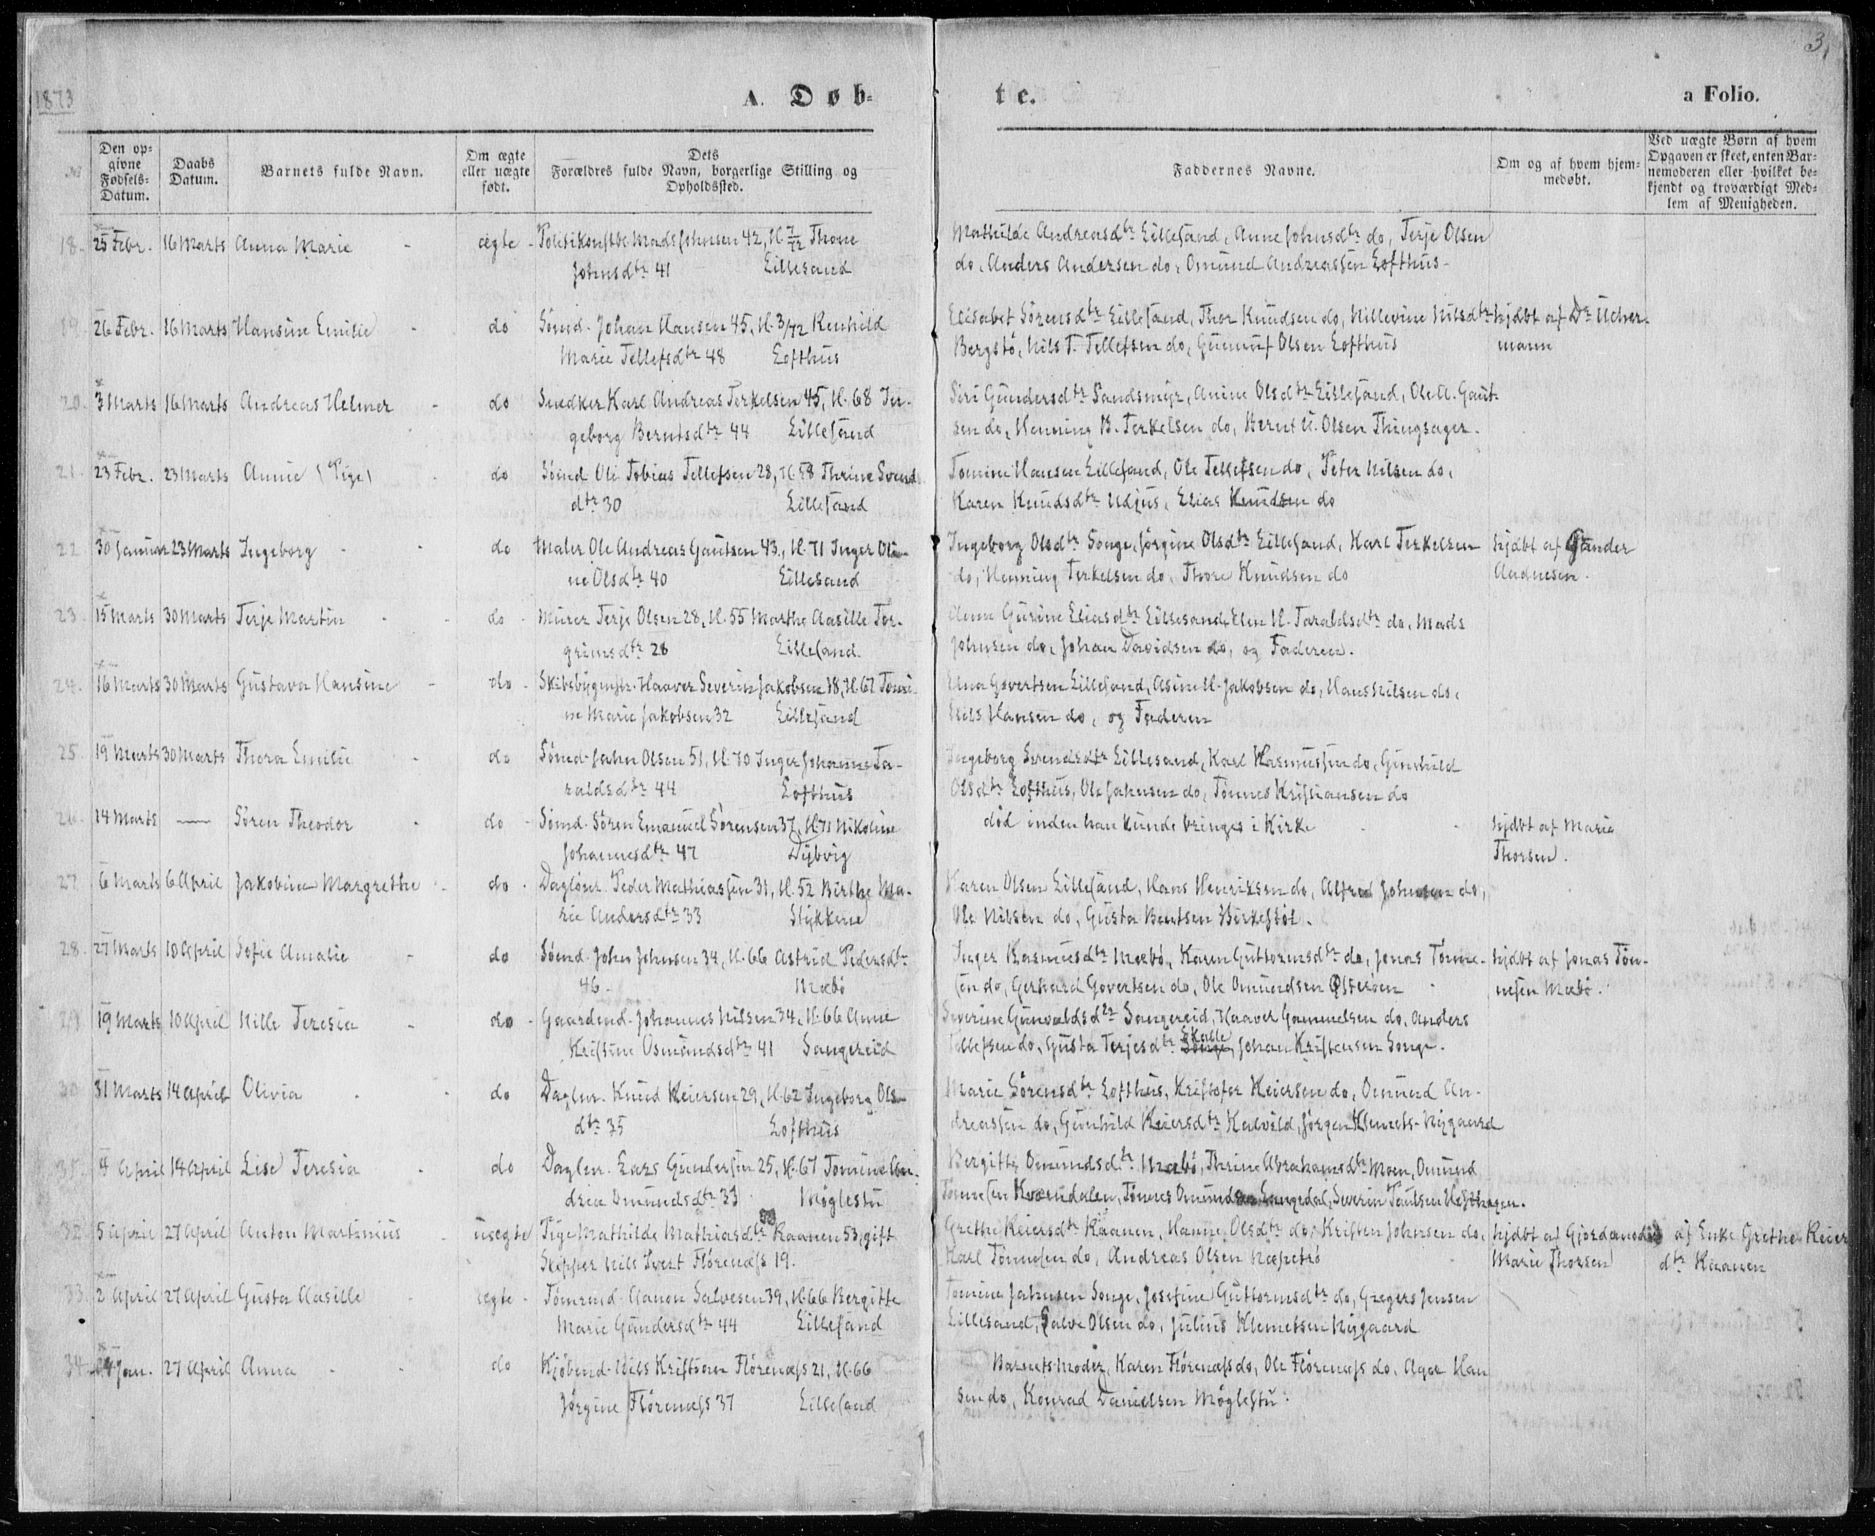 3.
1873
A. Døb-
te.
a Folio.
No
Den op-
givne
Fødsels-
Datum.
Daabs
Datum.
Barnets fulde Navn.
Om ægte
eller uægte
født.
Dets
Forældres fulde Navn, borgerlige Stilling og
Opholdssted.
Faddernes Navne.
Om og af hvem hjem-
medøbt.
Ved uægte Børn af hvem
Opgaven er skeet, enten Bar-
nemoderen eller hvilket be-
kjendt og troværdigt Med-
lem af Menigheden.
18. 25 Febr. 16 Marts Anna Marie - ægte - Politikonstbl Mads Johnsen 42, N. 7/72 Thone Mathilde Andreasdtr Lillesand, Anne Johnsdtr do, Terje Olsen
Johnsdtr 41 Lillesand do, Anders Andersen do, Omund Andreassen Lofthus -
19. 26 Febr. 16 Marts Hansine Emilie - do Sømd. Johan Hansen 45, N. 3/72 Elisabet Sørensdtr Lillesand, Thor Knudsen do, Nillevine Nilsdtr hjdbt af Dr Ucher-
Marie Tellefsdtr 48 Lofthus Bergstø, Nils T. Tellefsen do, Gunnuf Olsen Lofthus mann
20. 3 Marts 16 Marts Andreas Helmer - do Snedker Karl Andreas Terkelsen 45, N. 68 In- Siri Gundersdtr Sandsmyr, Anine Olsdtr Lillesand, Ole A. Gaut-
geborg Berntsdtr 44 Lillesand sen do, Henning B. Terkelsen do, Bernt U. Olsen Thingsager.
21. 23 Febr. 23 Marts Annie (Pige) - do Sømd Ole Tobias Tellefsen 28, N. 58 Thrine Svends Tomine Hansen Lillesand, Ole Tellefsen do, Peter Nilsen do,
dtr 30 Lillesand Karen Knudsdtr Udjus, Elias Knudsen do
22. 30 Januar 23 Marts Ingeborg - do Maler Ole Andreas Gautsen 43, N. 71 Inger Oli- Ingeborg Olsdtr Songe, Jørgine Olsdtr Lillesand, Karl Terkelsen hjdbt af Gunder
ne Olsdtr 40 Lillesand do, Henning Terkelsen do, Thore Knudsen do Aadnesen.
23. 15 Marts 30 Marts Terje Martin - do - Murer Terje Olsen 28, N. 55 Marthe Aasille Tor- Anne Gurine Eliasdtr Lillesand, Elen N. Taraldsdtr do, Mads
grimsdtr 28 Lillesand. Johnsen do, Johan Davidsen do, og Faderen.
24. 16 Marts 30 Marts Gustava Hansine - do - Skibsbygmstr. Haaver Severin Jakobsen 18, N. 67 Tomi- Govertsen Lillesand, Asine N. Jakobsen do, Hans Nilsen do,
ne Marie Jakobsen 32 Lillesand Nils Hansen do, og Faderen
25. 19 Marts 30 Marts Thora Emilie - do Sømd. Jahn Olsen 51, N. 70 Inger Johanne Ta- Ingeborg Svendsdtr Lillesand, Karl Rasmussen do, Gunhild
raldsdtr 44 Lofthus Olsdtr Lofthus, Ole Jahnsen do, Tønnes Kristiansen do
26. 14 Marts — Søren Theodor do - Sømd. Søren Emanuel Sørensen 37, N. 71 Nikoline død inden han kunde bringes i Kirke - hjdbt af Marie
Johannesdtr 47 Dybvig Thorsen.
27. 6 Marts 6 April Jakobine Margrethe - do - Dagløner. Peder Mathiassen 31, N. 52 Birthe Ma- Karen Olsen Lillesand, Hans Henriksen do, Alfred Johnsen do,
rie Andersdtr 33 Stykkene Ole Nilsen do, Gusta Berntsen Birkestøl.
28. 27 Marts 10 April Sofie Amalie - do Sømd. John Johnsen 34, N. 66 Astrid Pedersdtr Inger Rasmusdtr Mæbø, Karen Guttormsdtr do, Jonas Tønne- hjdbt af Jonas Tøn-
46 - Mæbø sen do, Gerhard Govertsen do, Ole Omundsen - nesen Mæbø.
29. 19 Marts 10 April Nille Teresia - do - Gaardmd. Johannes Nilsen 34, N. 66 Anne Severine Gunvaldsdtr Sangereid, Haaver Gunnuelsen do, Anders
Kristine Osmundsdtr 41 Sangereid Tellefsen do, Gusta Terjesdtr Skalle Songe, Johan Kristensen Songe.
30. 31 Marts 14 April Olivia - do Daglnr. Knud Reiersen 29, N. 62 Ingeborg Ols- Marie Sørensdtr Lofthus, Kristofer Reiersen do, Omund An-
dtr 35 Lofthus dreassen do, Gunhild Reiersdtr Kalvild, Jørgen Klemets- Nygaard
31. 4 April 14 April Lise Teresia - do Daglnr. Lars Gundersen 25, N. 67 Tomine An- Bergitte Omundsdtr Mæbø, Thrine Abrahamsdtr Moen, Omund
drea Omundsdtr 33 Møglestu Tønnesen Kvænndalen, Tønnes Omundsen Langedal, Severin Paulsen
32. 5 April 27 April Anton Martinius - uægte Pige Mathilde Mathiasdtr Kaanen 53, gift Grethe Reiersdtr Kaanen, Hanne Olsdtr do, Kristen Johnsen do, hjdbt af Gjordemoder af Enke Grethe Reiers
Skipper Nils Svert Flørenæss 19. Karl Tønnesen do, Andreas Olsen Marie Thorsen dtr Kaanen
33. 2 April 27 April Gusta Aasille - ægte - Tømrmd. Aanon Salvesen 39, N. 66 Bergitte Tomine Jahnsen Songe, Josefine Guttormsdtr do, Gregers Jensen
Marie Gundersdtr 44 Lillesand Lillesand, Salve Olsen do, Julius Klemetsen Nygaard
34. 4 Jan. 27 April Anna - do Kjøbmd. Nils Kristian Flørenæss 21, N. 66 Barnets Moder, Karen Flørenæss do, Ole Flørenæss do, Ager Han
Jørgine Flørenæss 37 Lillesand sen do, Konrad Danielsen Møglestu.